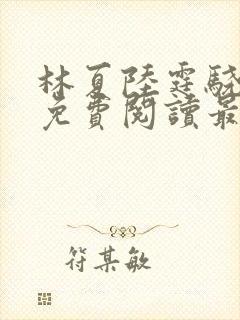 林夏陸霆驍
免費閱讀最
符某敏